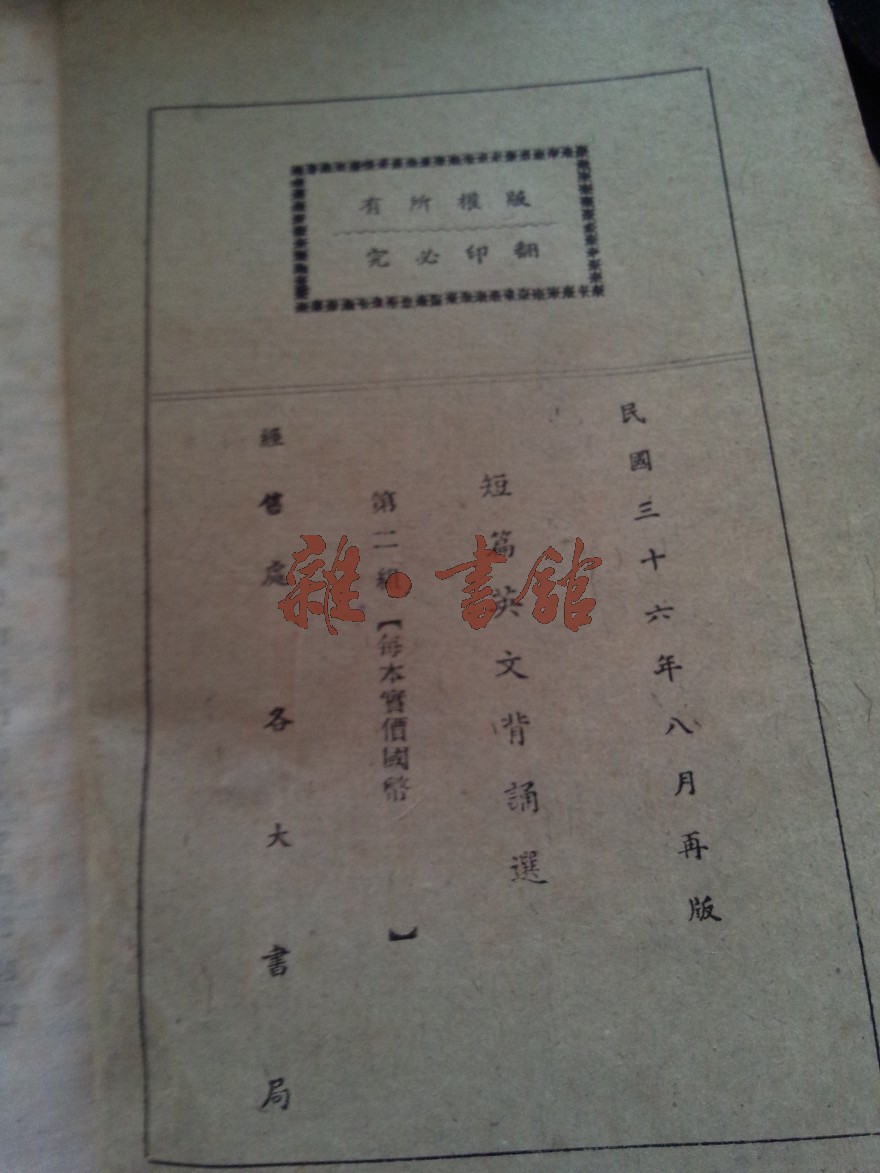 版權所有
翻印必究
民國三十六年八月再版
短篇英文背誦選
第二組【每本實價國幣　　】
經售處　各大書局
雜·書館